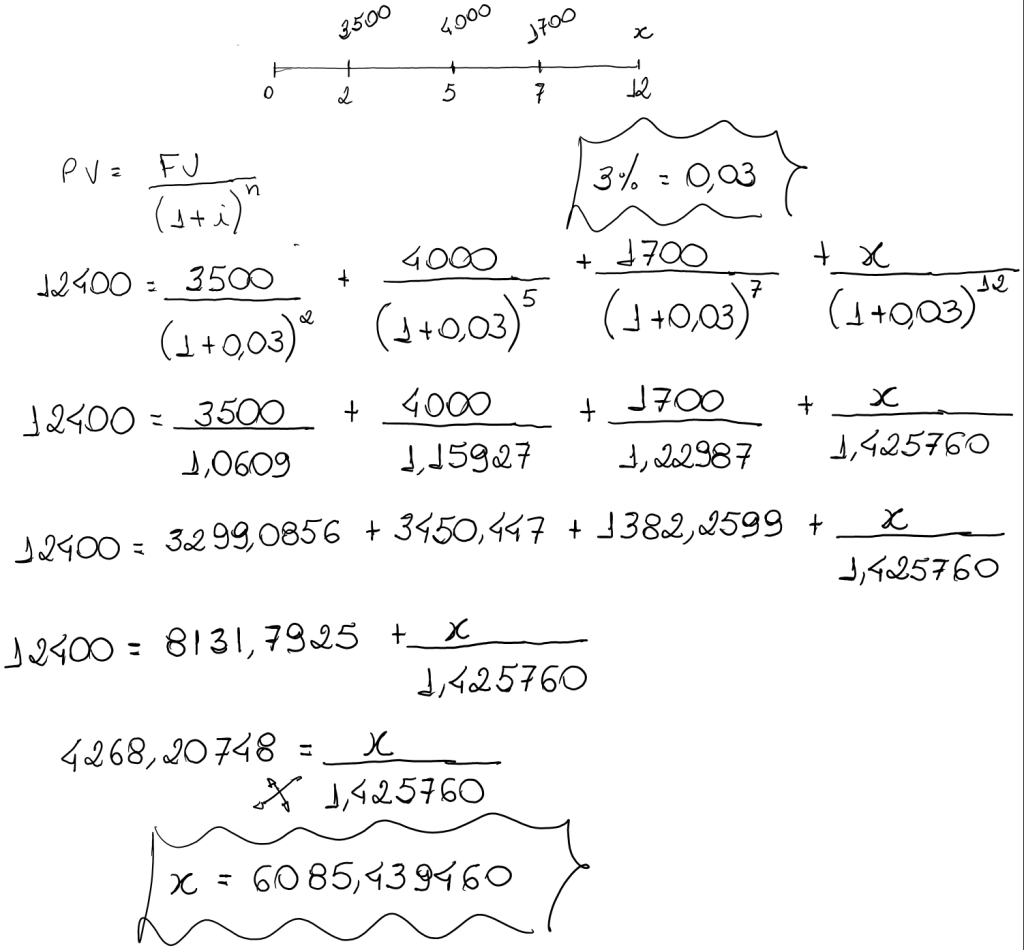 3500 4000 1700 x
0 2 5 7 12
PV = FV/(1+i)^n
3% = 0,03
12400 = 3500/(1+0,03)^2 + 4000/(1+0,03)^5 + 1700/(1+0,03)^7 + x/(1+0,03)^12
12400 = 3500/1,0609 + 4000/1,15927 + 1700/1,22987 + x/1,425760
12400 = 3299,0856 + 3450,447 + 1382,2599 + x/1,425760
12400 = 8131,7925 + x/1,425760
4268,20748 = x/1,425760
x = 6085,439460